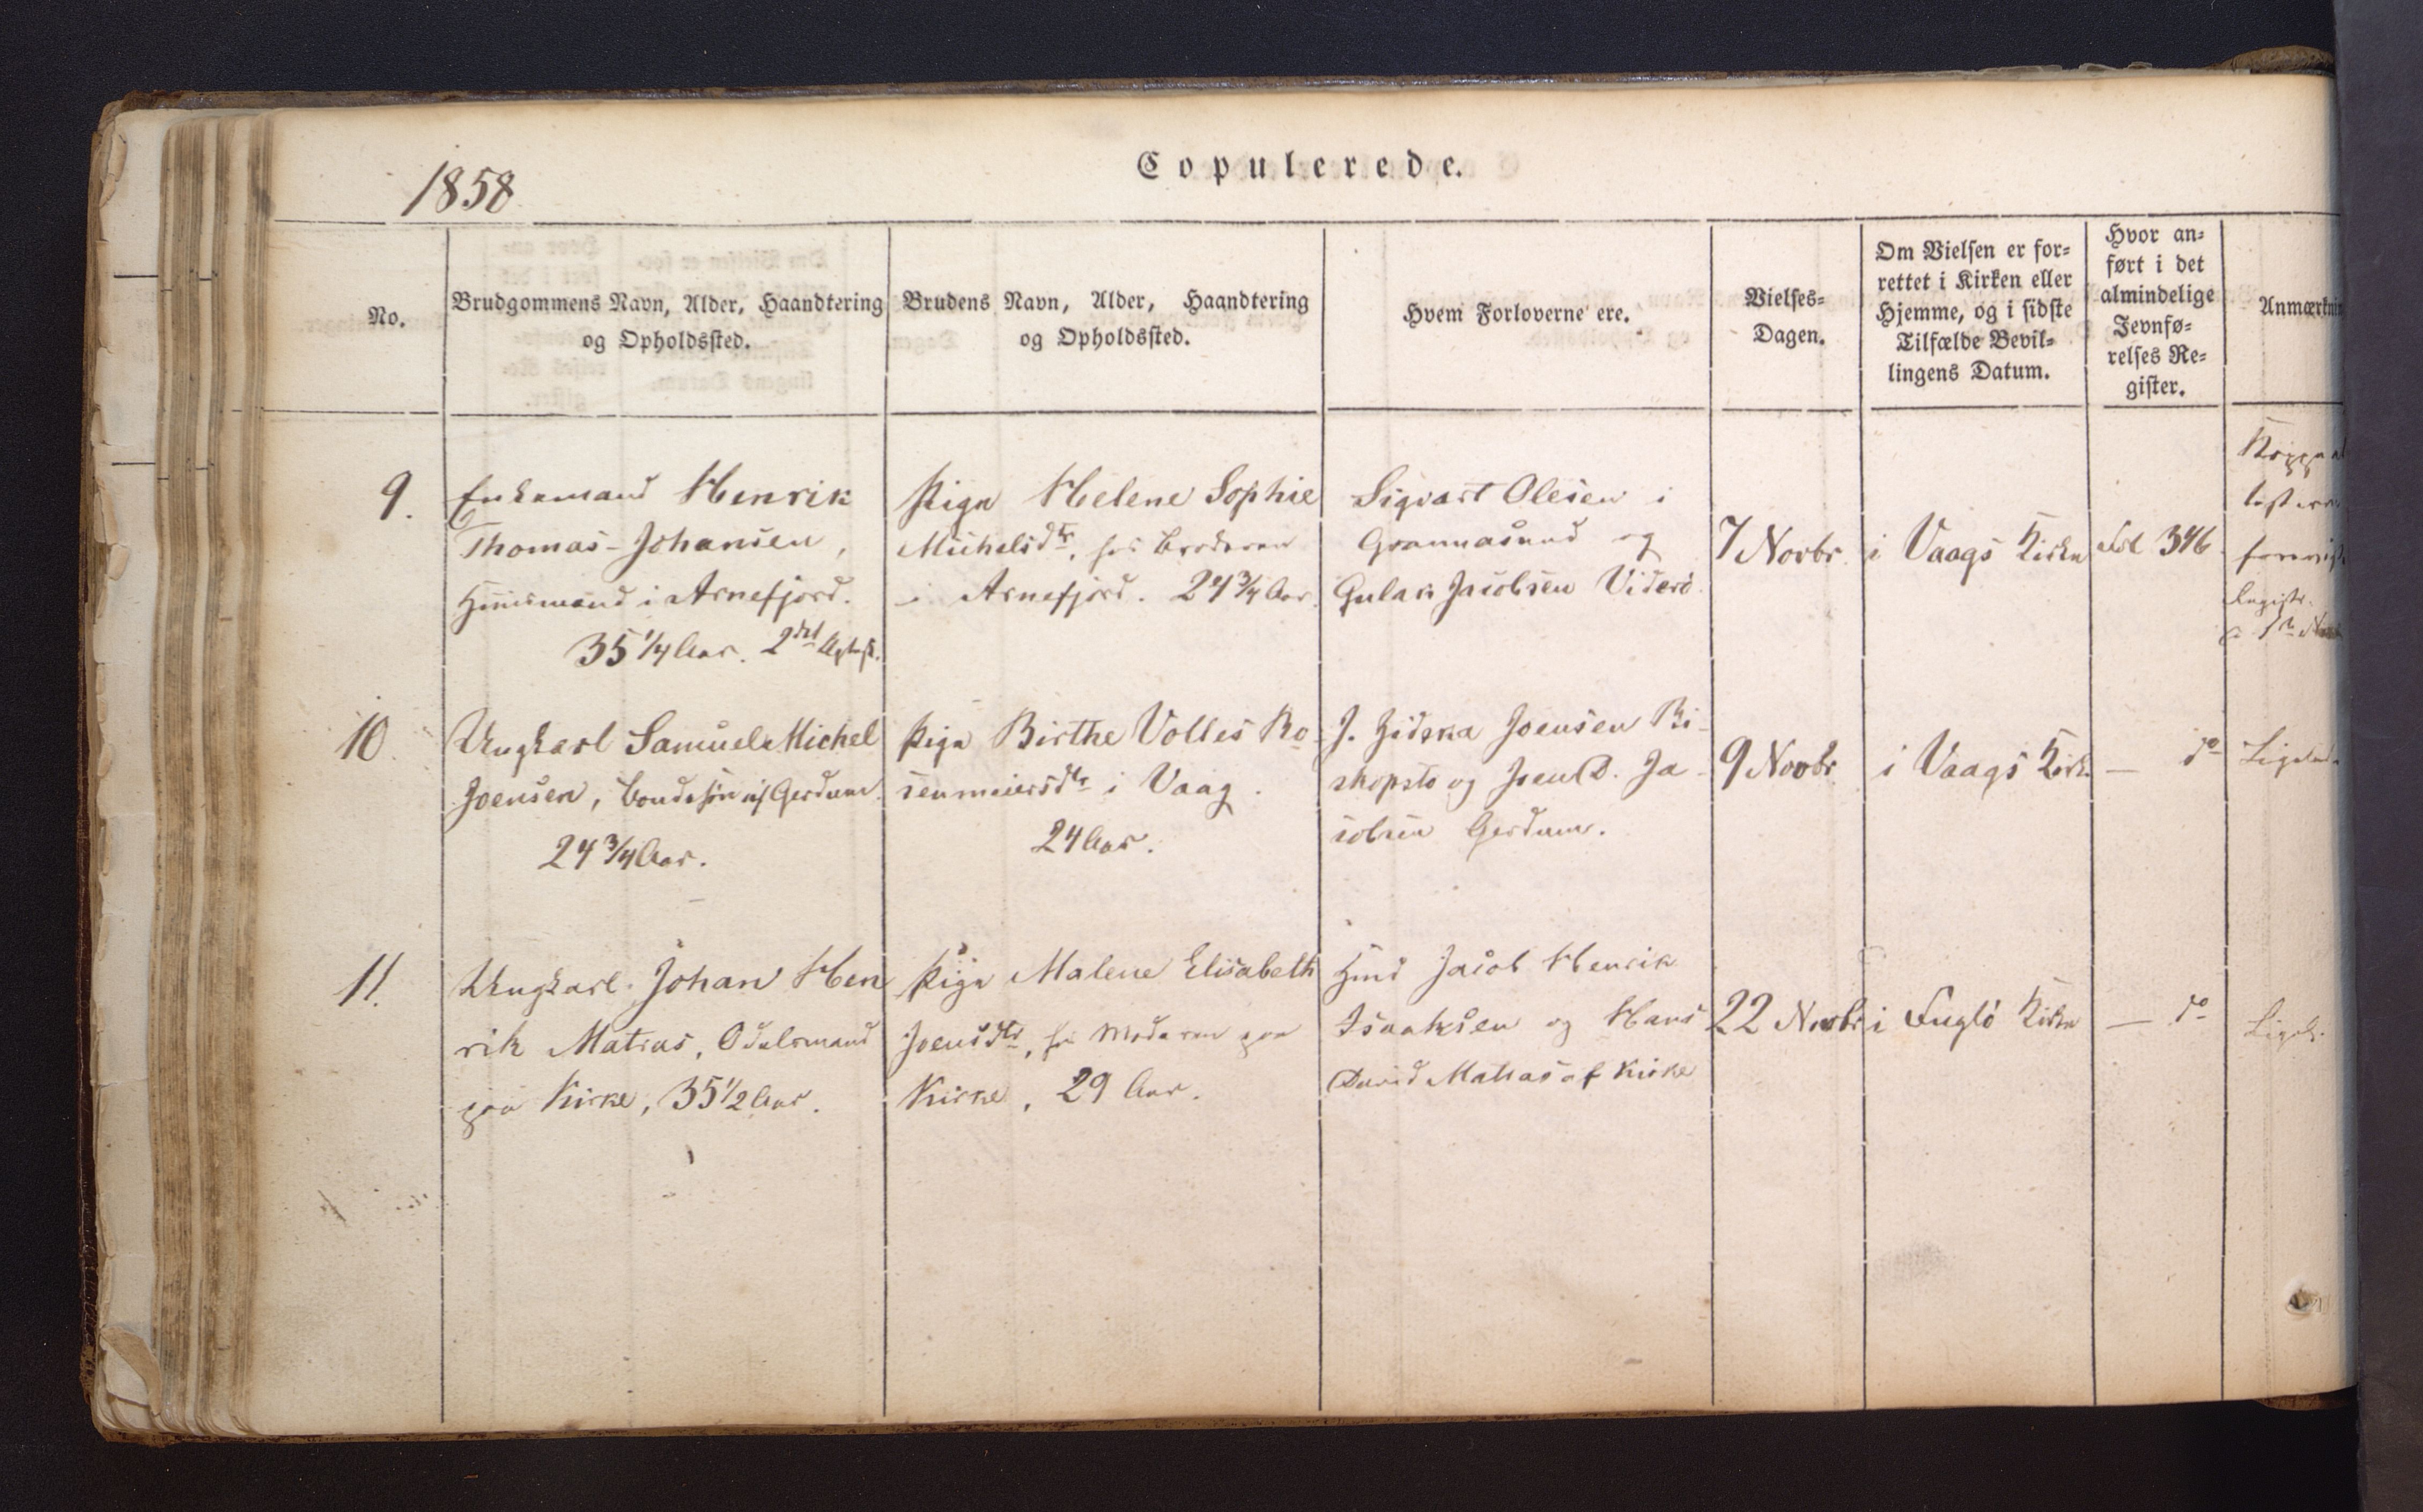 1858
Copulerede.
No.
Brudgommens Navn, Alder, Haandtering
og Opholdssted.
Brudens Navn, Alder, Haandtering
og Opholdssted.
Hvem Forloverne ere.
Vielses-
Dagen.
Om Vielsen er for-
rettet i Kirken eller
Hjemme, og i sidste
Tilfælde Bevil-
lingens Datum.
Hvor an-
ført i det
almindelige
Jevnfø-
relses Re-
gister.
Anmærknin
9.
Enkemand Henrik
Thomas-Johansen,
Huusmand i Arnefjord.
35 1/4 Aar. 2det Ægtesk.
Pige Helene Sophie
Michelsdtr, hos Broderen
i Arnefjord. 24 3/4 Aar.
Sigvart Olesen i
Grannasund og
Gulak Jacobsen Viderö
7 Novbr.
i Vaags Kirke
Fol 346
10.
Ungkarl Samuel Michel
Joensen, Bondesön af Gerdum.
24 3/4 Aar.
Pige Birthe Volles Ro-
senmeiersdtr i Vaag.
24 Aar.
J. Zidska Joensen Bi-
skopstö og Joen D. Ja-
cobsen Gerdum.
9 Novbr.
i Vaags Kirke
— do
Ligeled.
11.
Ungkarl Johan Hen
rik Matras, Odelsmand
paa Kirke, 35 1/2 Aar.
Pige Malene Elisabeth
Joensdtr, hos Moderen paa
Kirke, 29 Aar.
Hmd Jacob Henrik
Isaaksen og Hans
David Matras af Kirke
22 Novbr
i Fuglö Kirke
— do
Ligel.